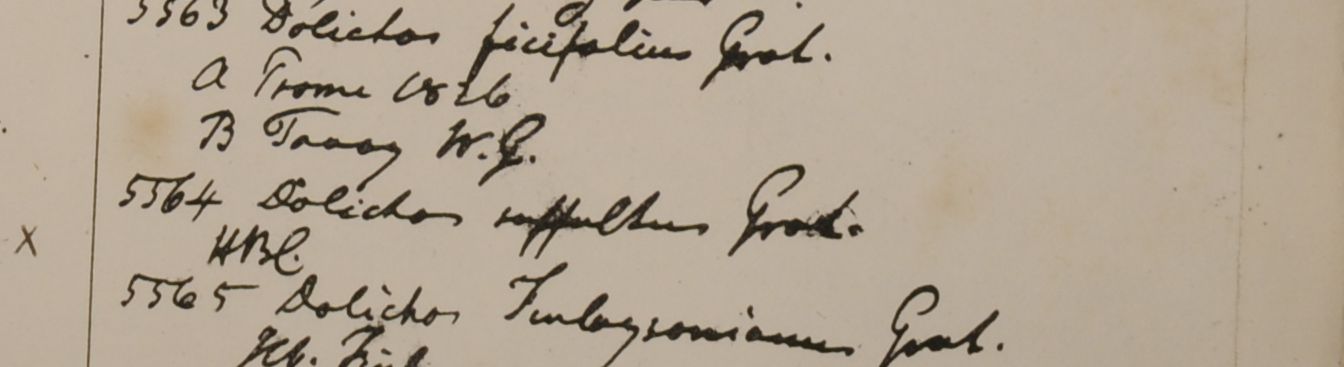 5563 Dolichos ficifolius Grah.
A Prome 1826
B Tavoy W.G.
5564 Dolichos suffultus Grah.
X
HBC.
5565 Dolichos Finlaysonianus Grah.
Hb. Finl